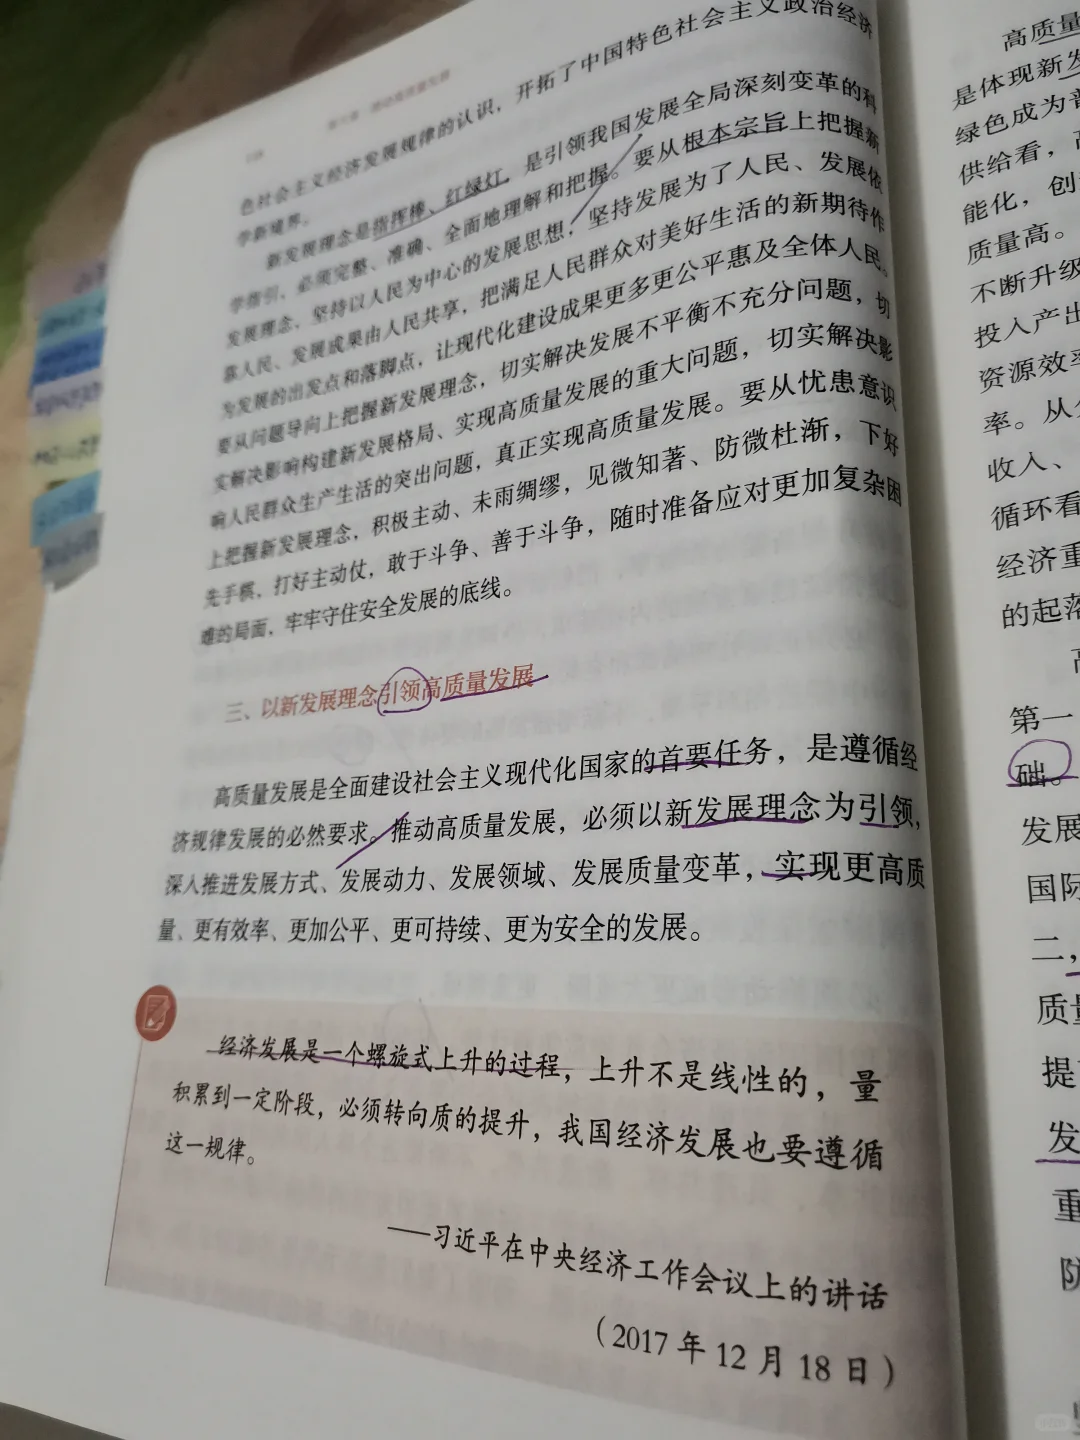 色社会主义经济发展规律的认识，开拓了中国特色社会主义政治经济
学新境界。
新发展理念是指挥棒、红绿灯，是引领我国发展全局深刻变革的科
学指引，必须完整、准确、全面地理解和把握。要从根本宗旨上把握新
发展理念，坚持以人民为中心的发展思想，坚持发展为了人民、发展依
靠人民、发展成果由人民共享，把满足人民群众对美好生活的新期待作
为发展的出发点和落脚点，让现代化建设成果更多更公平惠及全体人民。
要从问题导向上把握新发展理念，切实解决发展不平衡不充分问题，切
实解决影响构建新发展格局、实现高质量发展的重大问题，切实解决影
响人民群众生产生活的突出问题，真正实现高质量发展。要从忧患意识
上把握新发展理念，积极主动、未雨绸缪，见微知著、防微杜渐，下好
先手棋，打好主动仗，敢于斗争、善于斗争，随时准备应对更加复杂困
难的局面，牢牢守住安全发展的底线。
三、以新发展理念引领高质量发展
高质量发展是全面建设社会主义现代化国家的首要任务，是遵循经
济规律发展的必然要求。推动高质量发展，必须以新发展理念为引领，
深入推进发展方式、发展动力、发展领域、发展质量变革，实现更高质
量、更有效率、更加公平、更可持续、更为安全的发展。
经济发展是一个螺旋式上升的过程，上升不是线性的，量
积累到一定阶段，必须转向质的提升，我国经济发展也要遵循
这一规律。
——习近平在中央经济工作会议上的讲话
（2017年12月18日）
高质量
是体现新发
绿色成为普
供给看，高
能化，创
质量高。
不断升级
投入产出
资源效率
率。从
收入、
循环看
经济重
的起落
第一
础。
发展
国际
二，
质量
提
发
重
防